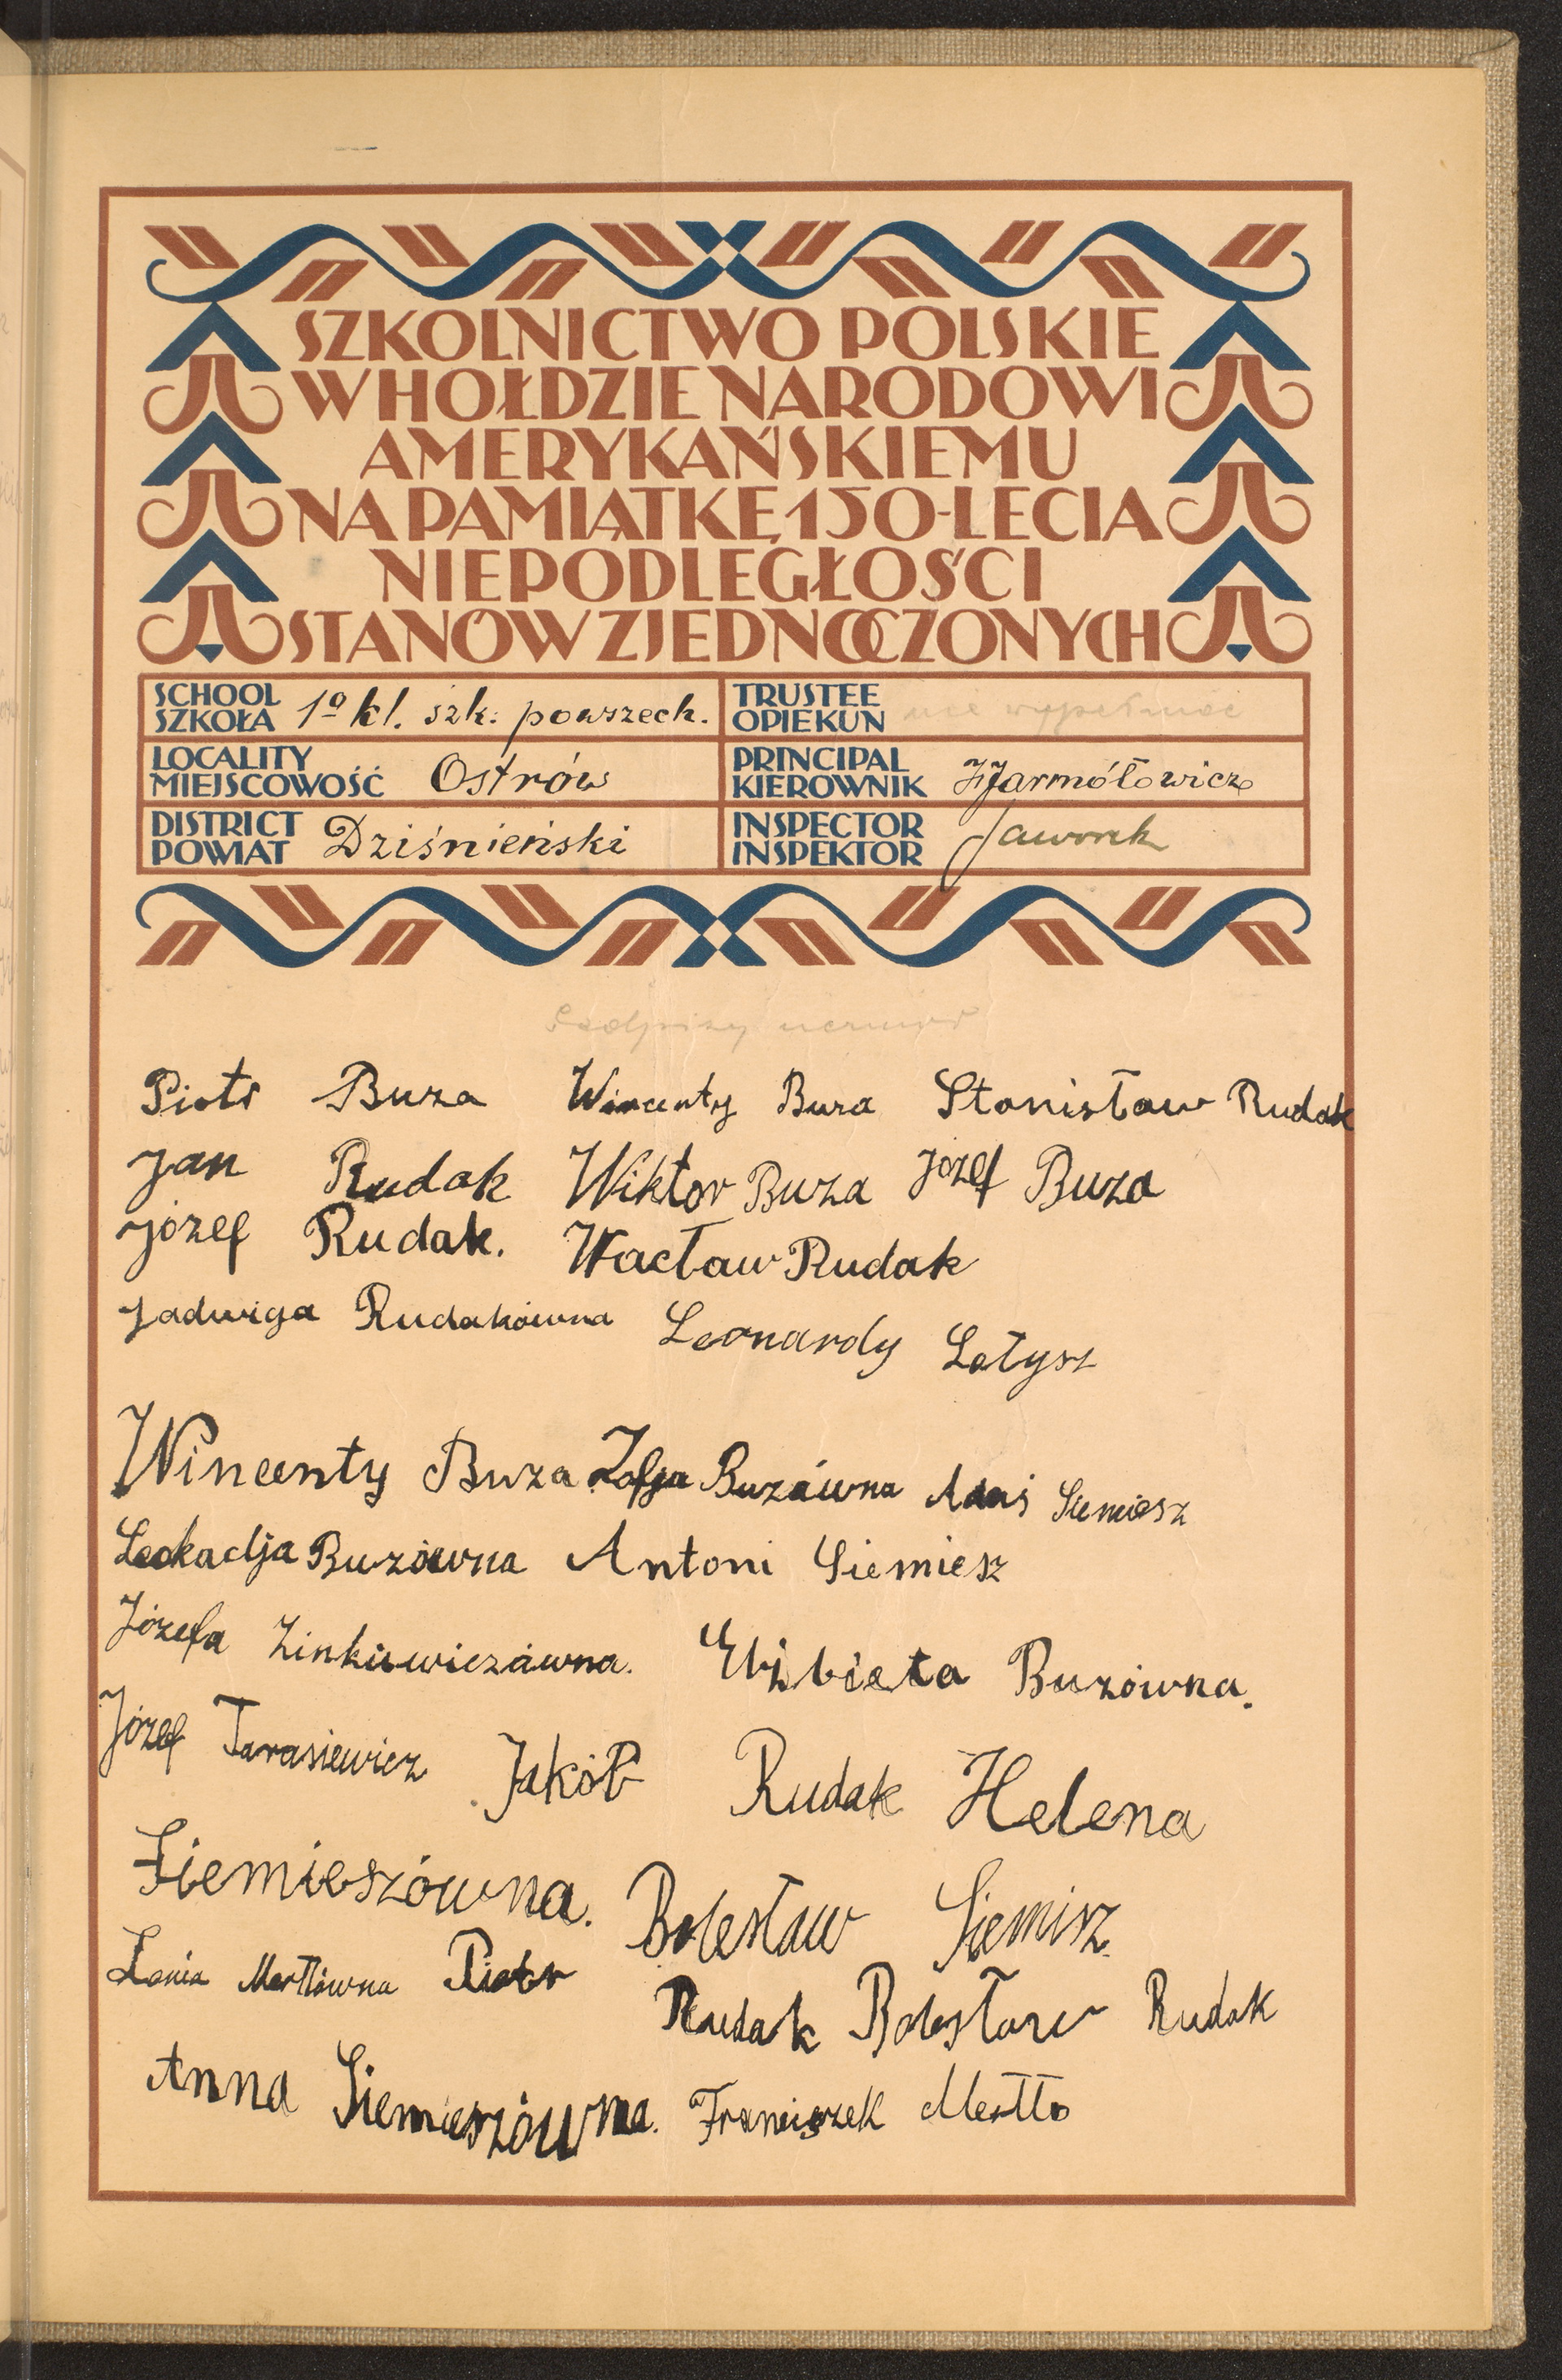 SZKOLNICTWO POLSKIE
W HOŁDZIE NARODOWI
AMERYKAŃSKIEMU
NA PAMIĄTKĘ 150-LECIA
NIEPODLEGŁOŚCI
STANÓW ZJEDNOCZONYCH
SCHOOL SZKOŁA 1º kl. szk. powszech.
TRUSTEE OPIEKUN nie wypełniać
LOCALITY MIEJSCOWOŚĆ Ostrów
PRINCIPAL KIEROWNIK HJarmółowicz
DISTRICT POWIAT Dziśnieński
INSPECTOR INSPEKTOR Jaworek
Podpisy uczniów
Piotr Buza Wincenty Buza Stanisław Rudak
Jan Rudak Wiktor Buza Józef Buza
Józef Rudak. Wacław Rudak
Jadwiga Rudakówna Leonardy Łotysz
Wincenty Buza Zofja Buzówna Adaś Siemiesz
Leokadja Buzówna Antoni Siemiesz
Józefa Zinkiewiczówna. Elżbieta Buzówna.
Józef Tarasiewicz Jakób Rudak Helena
Siemieszówna. Bolesław Siemisz.
Żenia Mertlówna Piotr Rudak Bolesław Rudak
Anna Siemieszówna. Franciszek Mertło